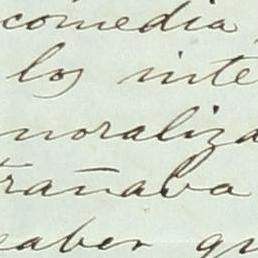 comedia
los inte
moraliza
trañaba
saber qu